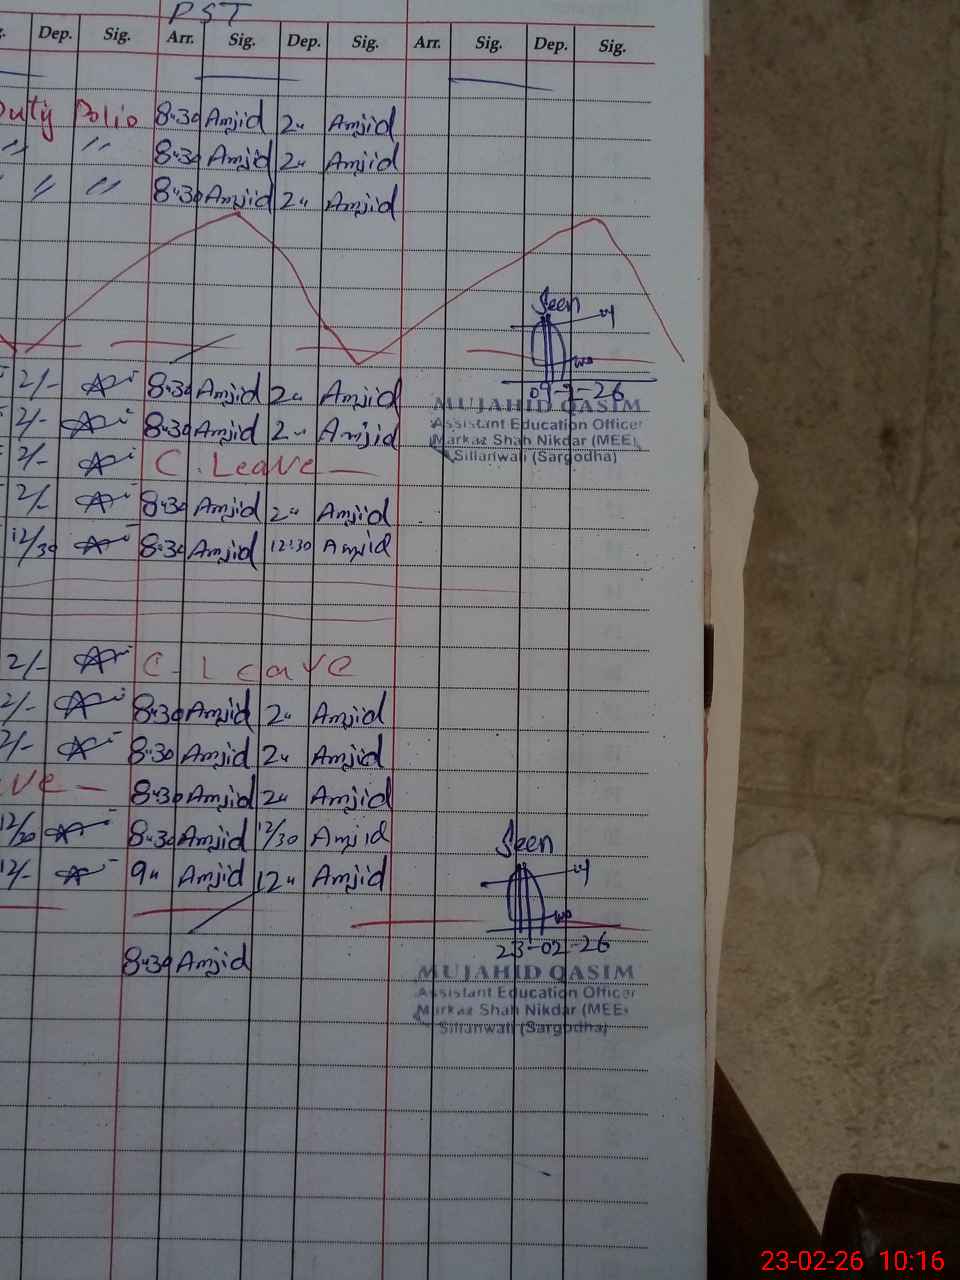 PST
Dep. Sig. Arr. Sig. Dep. Sig. Arr. Sig. Dep. Sig.
Duty Polio 8:30 Amjid 2" Amjid
" " 8:30 Amjid 2" Amjid
" " 8:30 Amjid 2" Amjid
Seen
2/- 8:30 Amjid 2" Amjid
09-2-26
MUJAHID QASIM
2/- 8:30 Amjid 2" Amjid
Assistant Education Officer
Markaz Shah Nikdar (MEE)
2/- C. Leave —
Sillanwali (Sargodha)
2/- 8:30 Amjid 2" Amjid
12/30 8:30 Amjid 12:30 Amjid
2/- C. Leave
2/- 8:30 Amjid 2" Amjid
2/- 8:30 Amjid 2" Amjid
ve — 8:30 Amjid 2" Amjid
12/30 8:30 Amjid 12/30 Amjid
Seen
12/- 9" Amjid 12" Amjid
23-02-26
8:30 Amjid
MUJAHID QASIM
Assistant Education Officer
Markaz Shah Nikdar (MEE)
Sillanwali (Sargodha)
23-02-26 10:16